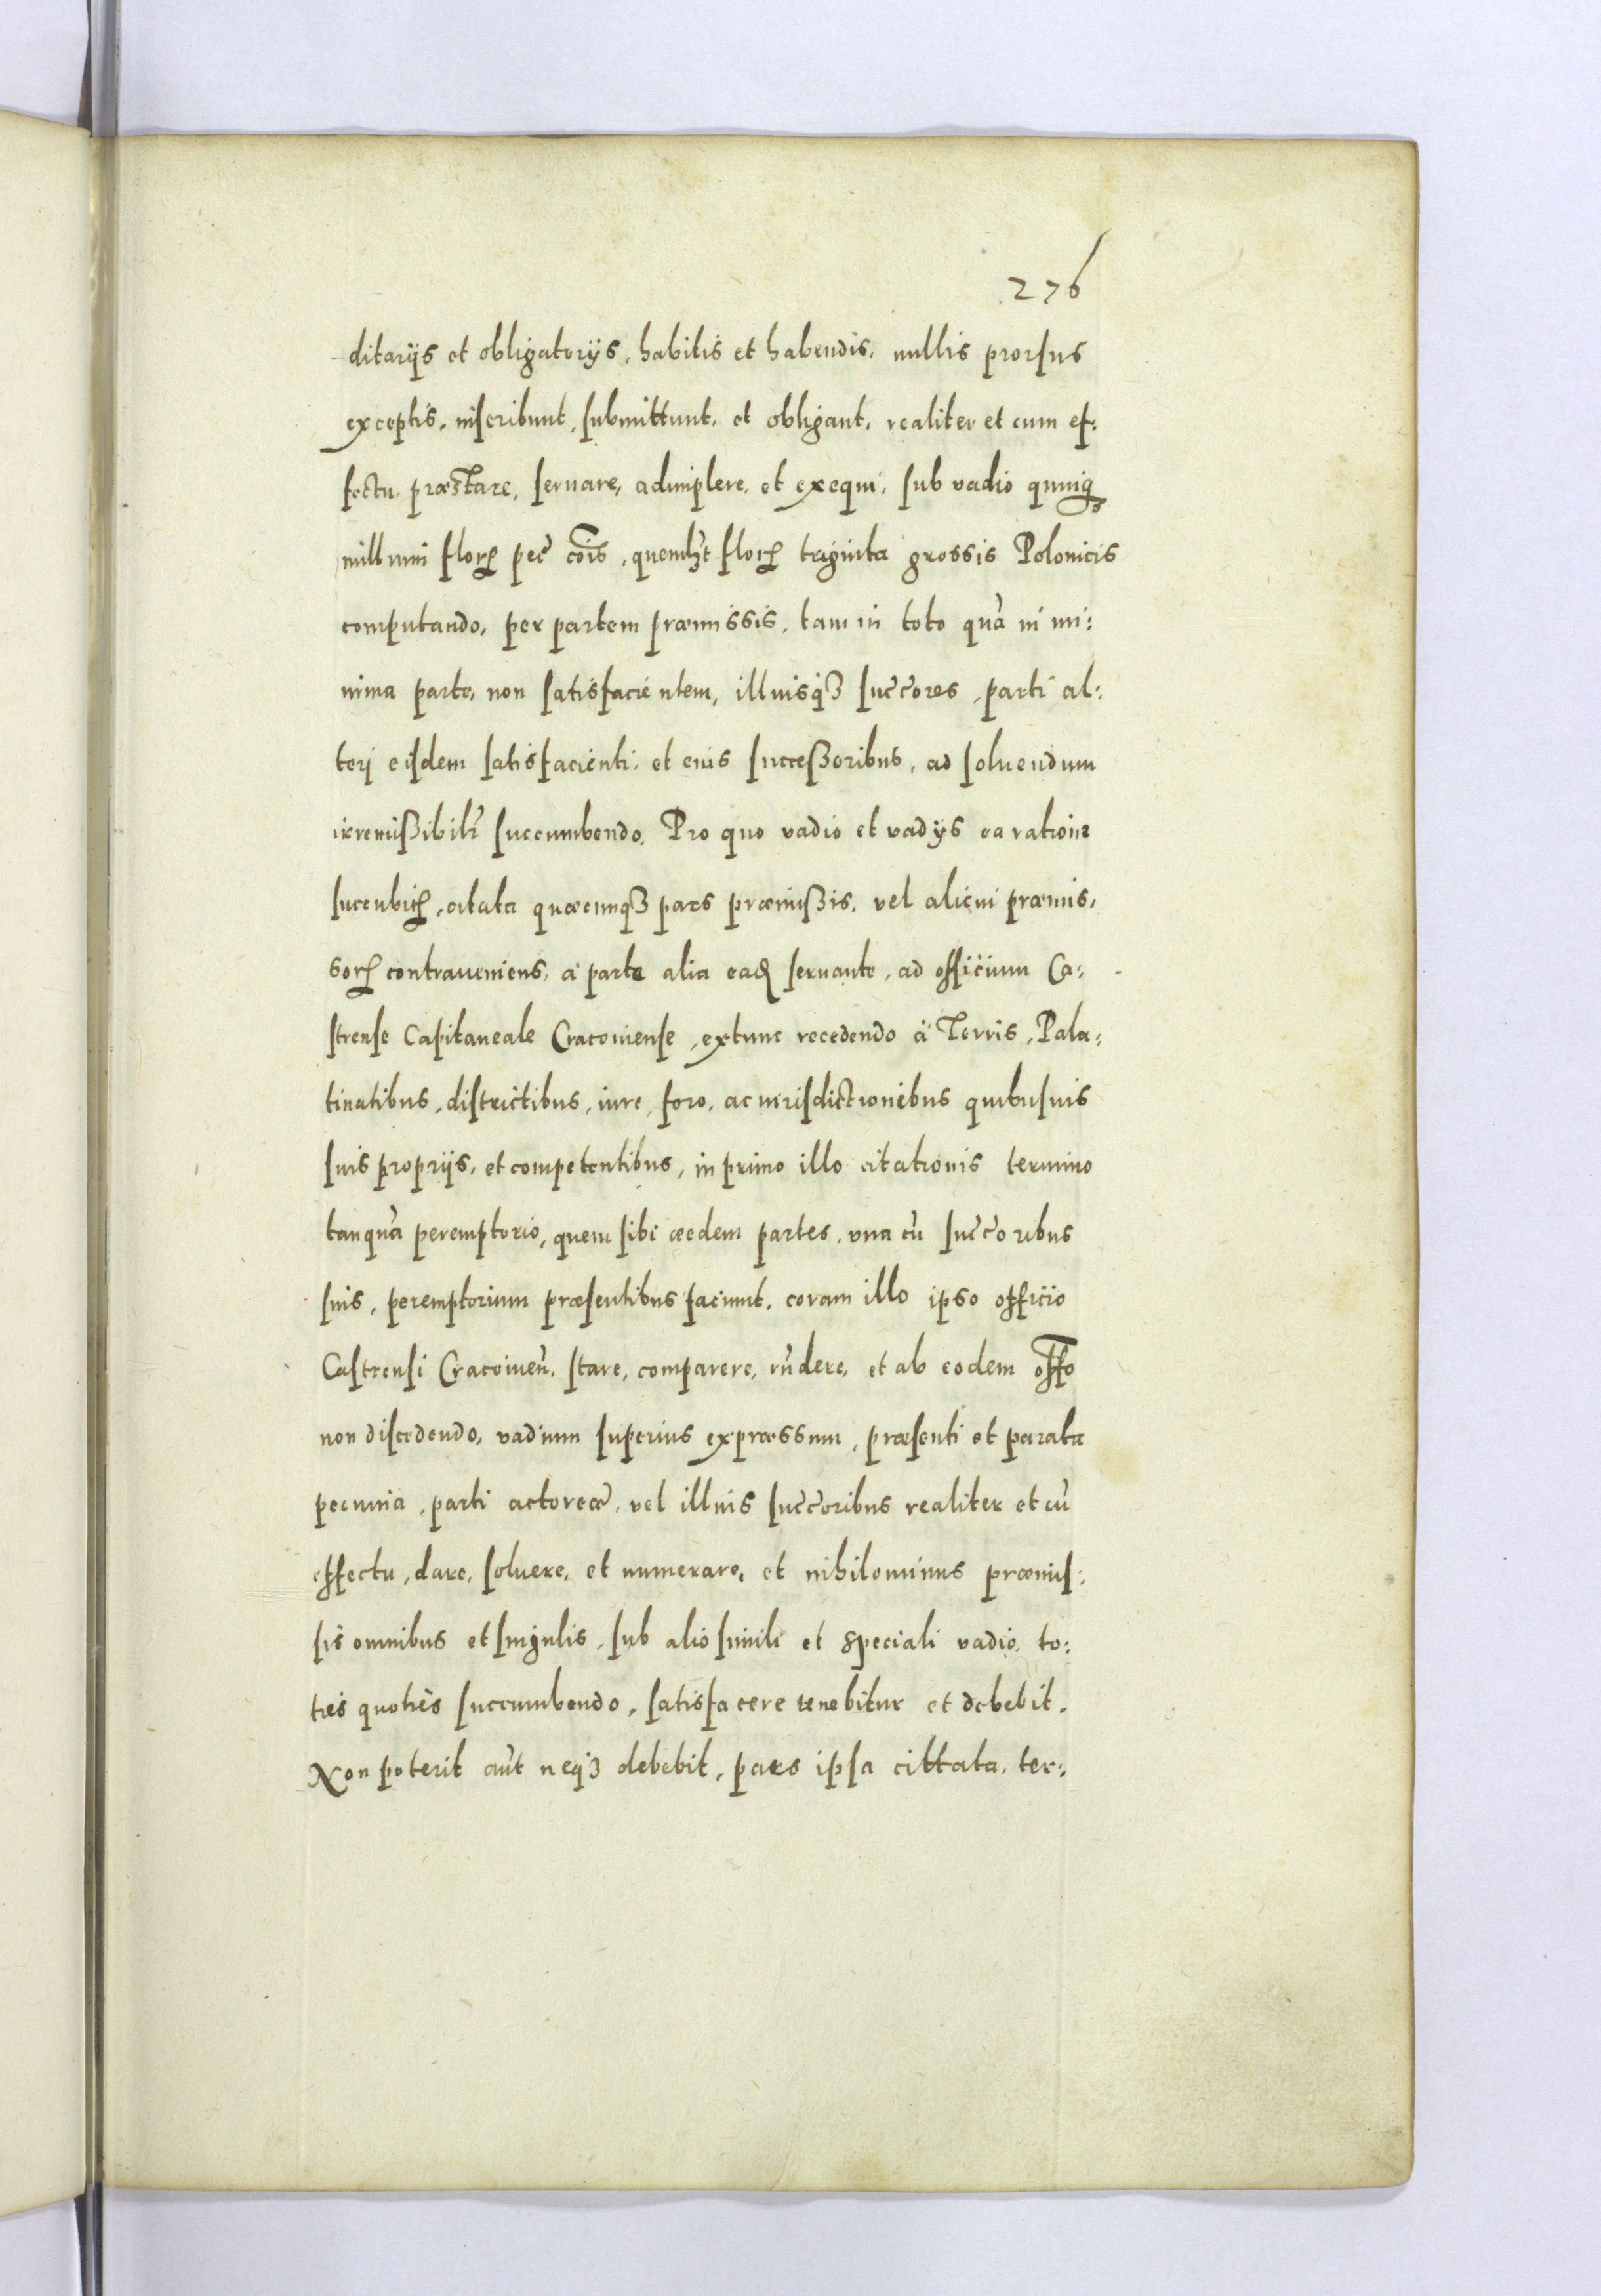 276
ditarijs et obligatorijs, habitis et habendis, nullis prorsus
exceptis, inscribunt, submittunt, et obligant, realiter et cum ef:
fectu, præstare, seruare, adimplere, et exequi, sub vadio quinqꝫ
millium florꝝ pec̃ cõis, quemlꝫt florꝝ triginta grossis Polonicis
computando, per partem præmissis, tam in toto quã in mi:
nima parte, non satisfacientem, illiusqꝫ succ̃ores, parti al:
teri eisdem satisfacienti, et eius successoribus, ad soluendum
irremissibilr̃ succumbendo. Pro quo vadio et vadijs ea ratione
succubitꝝ, citata quæcunqꝫ pars præmissis, vel alicui præmis,
sorꝝ contraueniens, à parte alia eadꝫ seruante, ad officium Ca:
strense Capitaneale Cracouiense, extunc recedendo à Terris, Pala:
tinatibus, districtibus, iure, foro, ac iurisdictionibus quibusuis
suis proprijs, et competentibus, in primo illo citationis termino
tanquã peremptorio, quem sibi eædem partes, vna cũ succ̃oribus
suis, peremptorium præsentibus faciunt, coram illo ipso officio
Castrensi Cracouieñ. stare, comparere, rñdere, et ab eodem offo
non discedendo, vadium superius expræssum, præsenti et parata
pecunia, parti actoreæ, vel illius succ̃oribus realiter et cũ
effectu, dare, soluere, et numerare, et nihilominus præmis:
sis omnibus et singulis, sub alio simili et speciali vadio, to:
ties quoties succumbendo, satisfacere tenebitur et debebit.
Non poterit aũt neqꝫ debebit, pars ipsa cittata, ter: